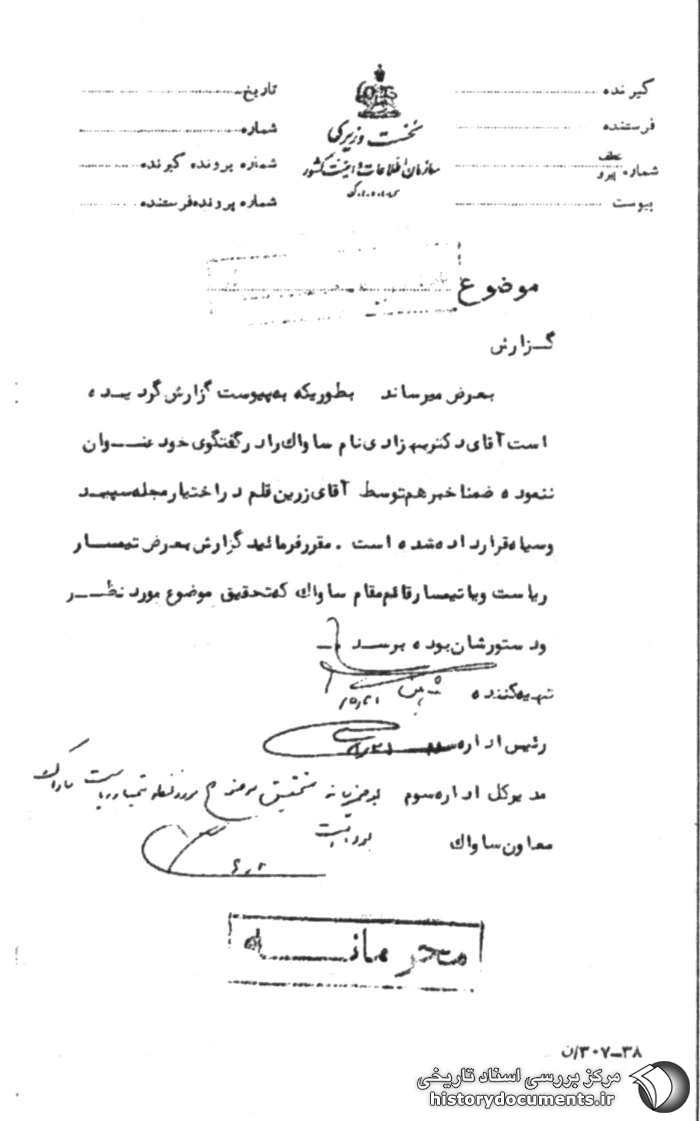 گیرنده
فرستنده
شماره عطف پیرو
پیوست
نخست وزیری
سازمان اطلاعات و امنیت کشور
س.ا.و.ا.ک
تاریخ
شماره
شماره پرونده گیرنده
شماره پرونده فرستنده
موضوع
گزارش
بعرض میرساند بطوریکه به پیوست گزارش گردیده
است آقای دکتر بهزادی نام ساواک را در گفتگوی خود عنوان
ننموده ضمنا خبر هم توسط آقای زرین قلم در اختیار مجله سپید
و سیاه قرار داده شده است . مقرر فرمائید گزارش بعرض تیمسار
ریاست و یا تیمسار قائم مقام ساواک که تحقیق موضوع مورد نظر
و دستورشان بوده برسد
تهیه کننده
رئیس اداره
مدیر کل اداره سوم
معاون ساواک
محرمانه
۳۸-۳۰۷/ن
مرکز بررسی اسناد تاریخی
historydocuments.ir